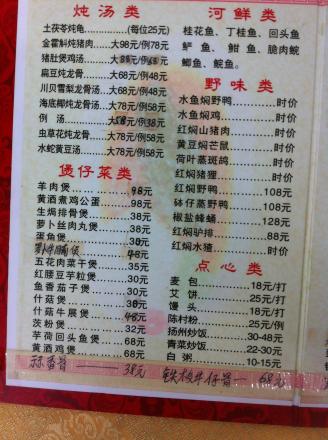 炖汤类
土茯苓炖龟............(每位25元)
金霍斛炖猪肉......大98元/例38元
猪肚煲鸡汤......大88元/例68元
扁豆炖龙骨......大68元/例48元
川贝雪梨龙骨汤...大68元/例48元
海底椰炖龙骨...大78元/例58元
例 汤............大58元/例38元
虫草花炖龙骨......大78元/例58元
水蛇黄豆汤......大78元/例58元
煲仔菜类
羊肉煲............98元
黄酒煮鸡公蛋......98元
生焗排骨煲......38元
萝卜丝肉丸煲......38元
蛋鱼煲............30元
萝卜牛腩煲 48元
五花肉菜干煲......35元
红腰豆芋粒煲......30元
鱼香茄子煲......30元
什菇煲............30元
什菇牛展煲......48元
茨粉煲............32元
芋荷回头鱼煲......68元
黄酒鸡煲............68元
蒜香骨 —— 38元
河鲜类
桂花鱼、丁桂鱼、回头鱼
鲈鱼、鲋鱼、脆肉鲩
鲫鱼、鲩鱼。
野味类
水鱼焖野鸭............时价
水鱼焖鸡............时价
红焖山猪肉............时价
黄豆焖芒鼠............时价
荷叶蒸斑鸪............时价
红焖猪狸............时价
红焖野鸭............108元
钵仔蒸野鸭............108元
椒盐蜂蛹............128元
红焖驴排............88元
红焖水獞............时价
点心类
麦 包............18元/打
艾 饼............25元/打
馒 头............18元/打
陈村粉............25元/例
扬州炒饭............30-48元
青菜炒饭............22-30元
白 粥............10-15元
铁板牛仔骨 —— 68元